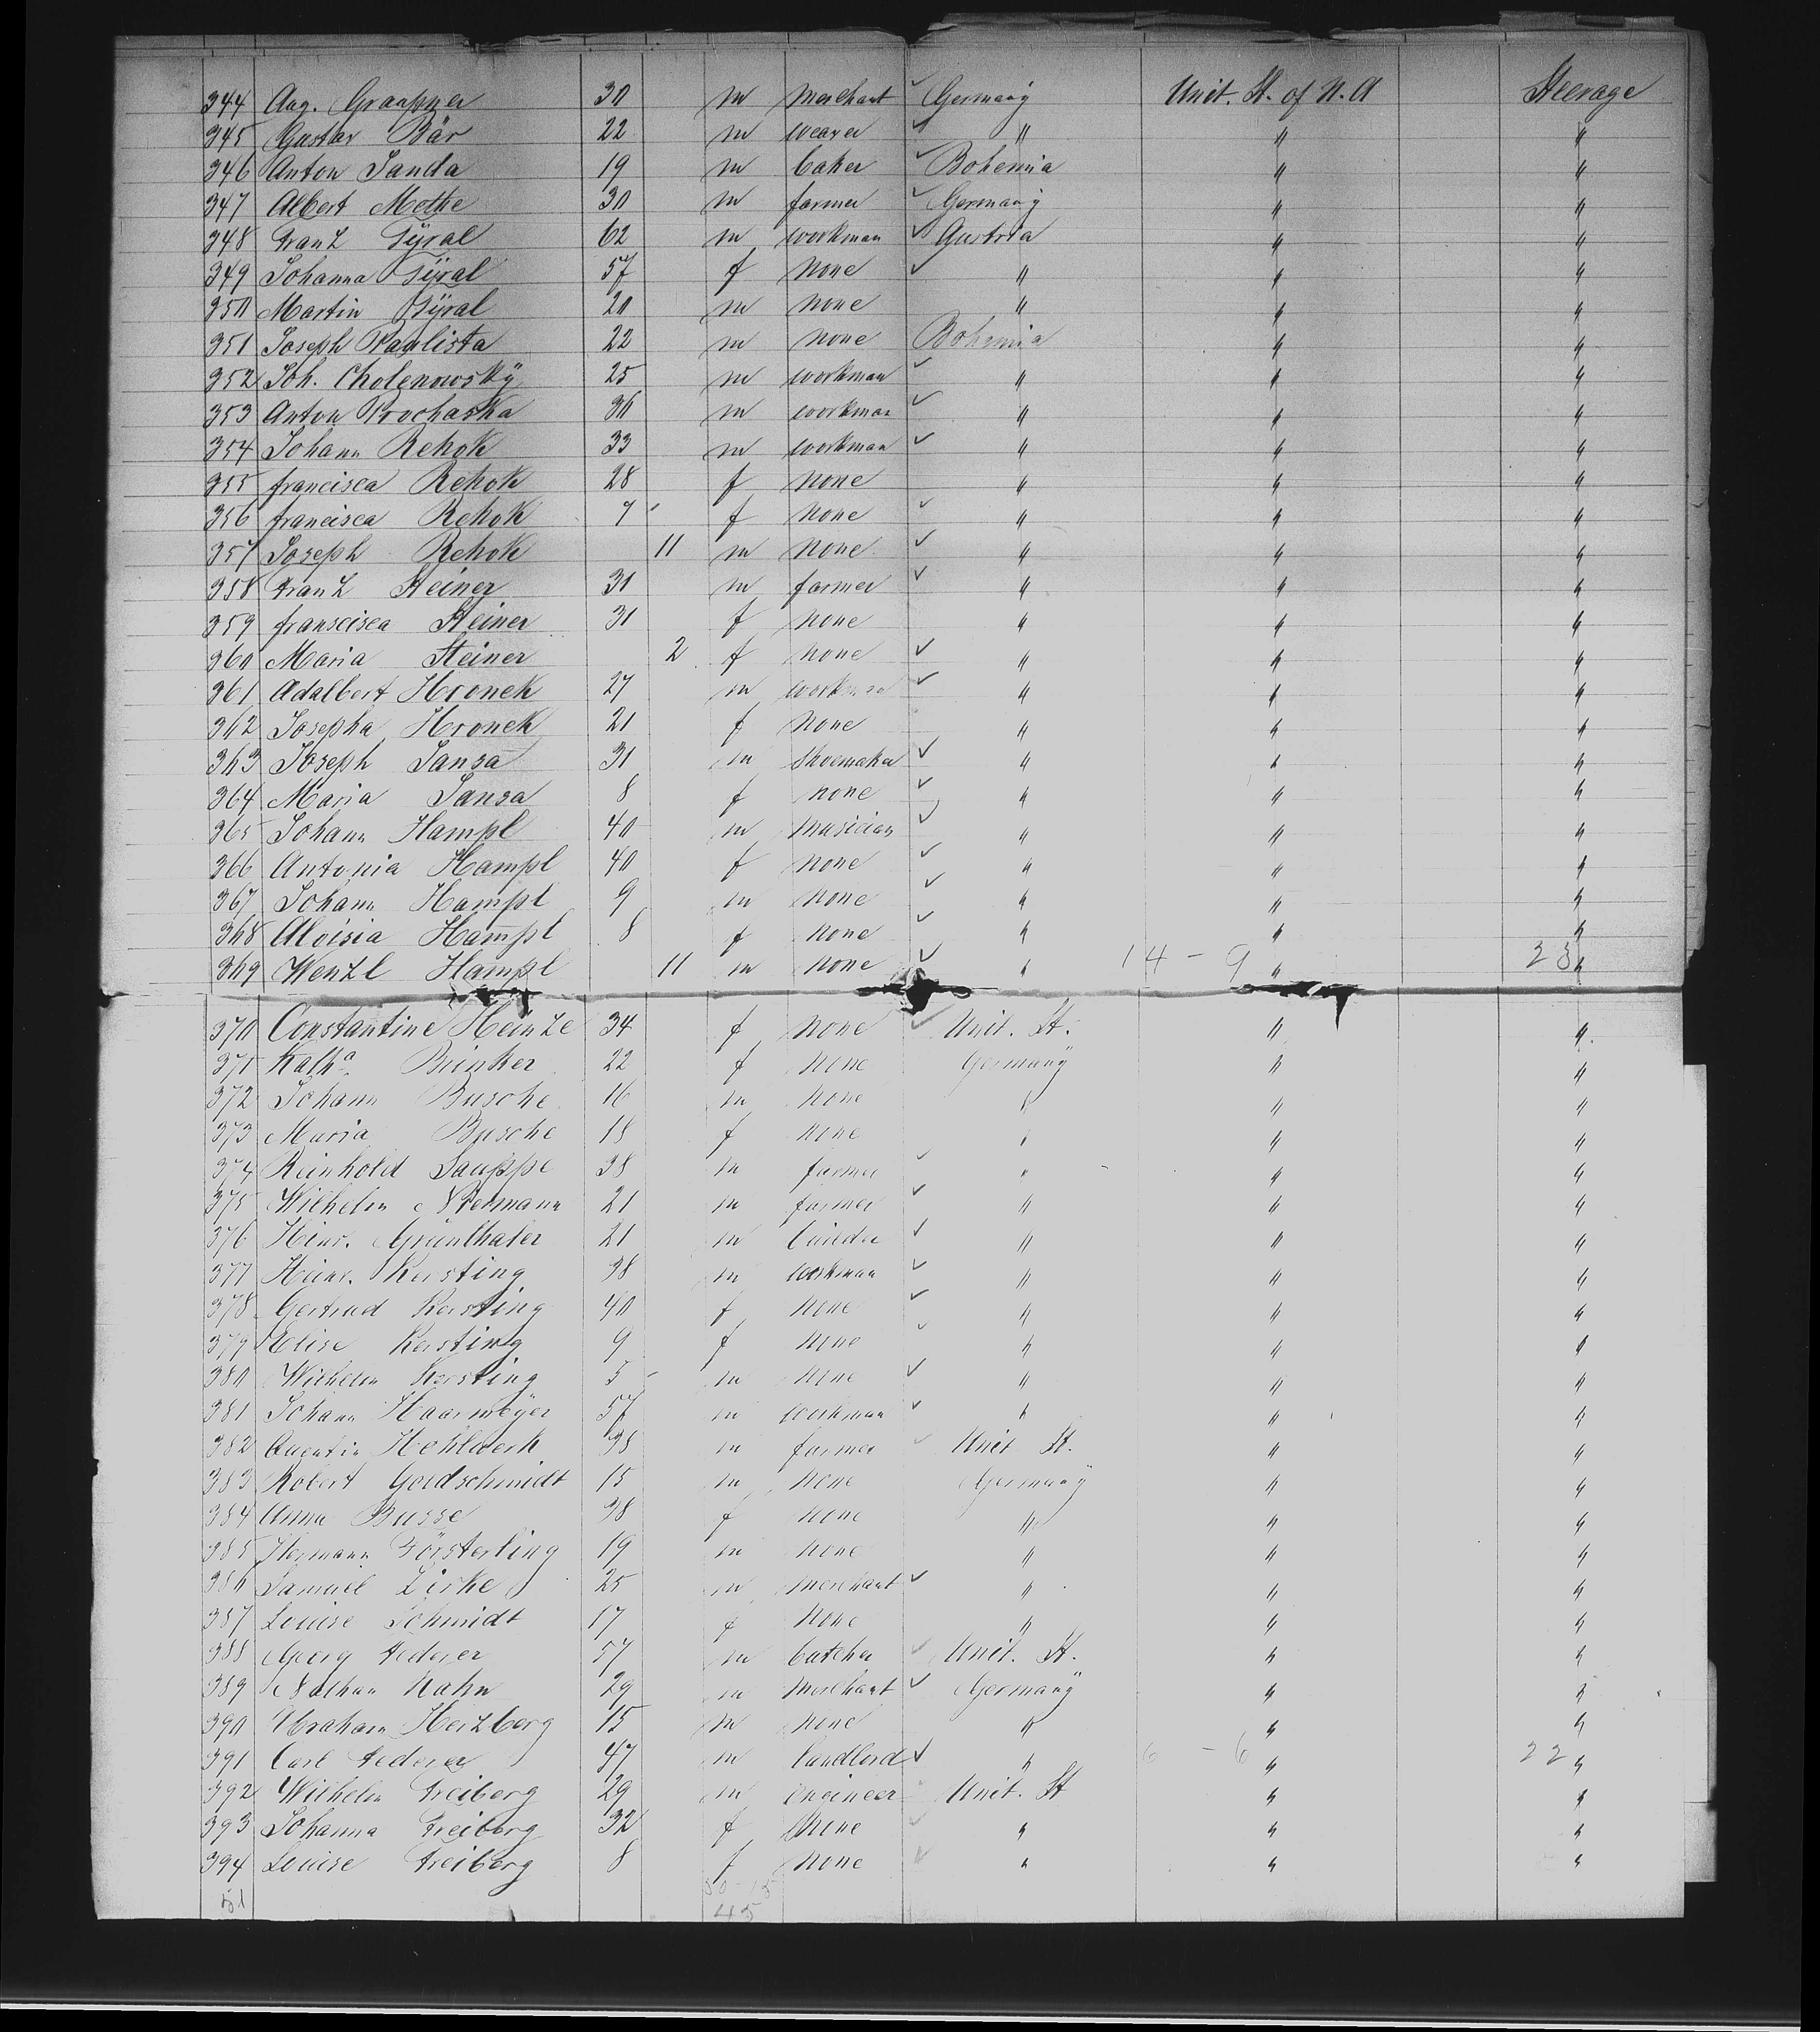 344 Aug. Graupner 30 m merchant ✓ Germany Unit. St. of N. A Steerage
345 Gustav Bär 22 m weaver ✓ " " "
346 Anton Janda 19 m baker ✓ Bohemia " "
347 Albert Mothe 30 m farmer ✓ Germany " "
348 Franz Syral 62 m workman ✓ Austria " "
349 Johanna Syral 57 f none ✓ " " "
350 Martin Syral 20 m none " " "
351 Joseph Pavlista 22 m none Bohemia " "
352 Joh. Cholenowsky 25 m workman ✓ " " "
353 Anton Prochaska 36 m workman ✓ " " "
354 Johann Rehok 33 m workman ✓ " " "
355 francisca Rehok 28 f none " " "
356 francisca Rehok 7 f none ✓ " " "
357 Joseph Rehok 11 m none ✓ " " "
358 Franz Steiner 31 m farmer ✓ " " "
359 franscisca Steiner 31 f none " " "
360 Maria Steiner 2 f none ✓ " " "
361 Adalbert Hronek 27 m workman ✓ " " "
362 Josepha Hronek 21 f none " " "
363 Joseph Jansa 31 m shoemaker ✓ " " "
364 Maria Jansa 8 f none ✓ " " "
365 Johann Hampl 40 m musician ✓ " " "
366 Antonia Hampl 40 f none ✓ " " "
367 Johann Hampl 9 m none ✓ " " "
368 Aloisia Hampl 8 f none ✓ " " "
369 Wenzl Hampl 11 m none ✓ " 14 - 9 " 23 "
370 Constantine Heinze 34 f none ✓ Unit. St. " "
371 Katha. Brinker 22 f none Germany " "
372 Johann Busche 16 m none " " "
373 Maria Busche 18 f none " " "
374 Reinhold Sauppe 38 m farmer ✓ " " "
375 Wilhelm Niermann 21 m farmer ✓ " " "
376 Heinr. Grünthaler 21 m ✓ " " "
377 Heinr. Kersting 38 m workman ✓ " " "
378 Gertrud Kersting 40 f none ✓ " " "
379 Elise Kersting 9 f none ✓ " " "
380 Wilhelm Kersting 5 m none ✓ " " "
381 Johann Haarmeyer 57 m workman ✓ " " "
382 Quentin Hohlwerk 38 m farmer ✓ Unit St. " "
383 Robert Goldschmidt 15 m none Germany " "
384 Anna Busse 38 f none " " "
385 Hermann Försterling 19 m none " " "
386 Samuel Zirke 25 m merchant ✓ " " "
387 Louise Schmidt 17 f none " " "
388 Georg Federer 57 m butcher ✓ Unit. St. " "
389 Nathan Kahn 29 m merchant ✓ Germany " "
390 Abraham Herzberg 15 m none " " "
391 Carl Federer 47 m landlord ✓ " 6 - 6 " 22 "
392 Wilhelm Freiberg 29 m engineer Unit. St " "
393 Johanna Freiberg 32 f none ✓ " " "
394 Louise Freiberg 8 f none ✓ " " "
51 30 - 15
45